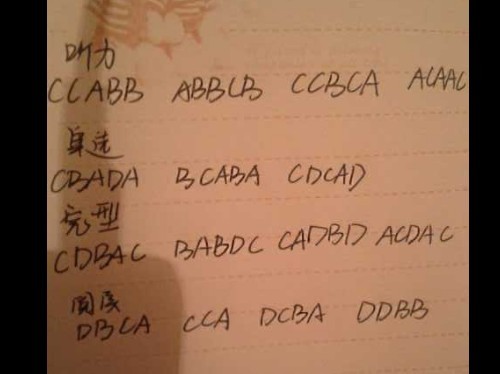 听力
CCABB ABBCB CCBCA ACAAC
单选
CBADA BCABA CDCAD
完型
CDBAC BABDC CADBD ACDAC
阅读
DBCA CCA DCBA DDBB